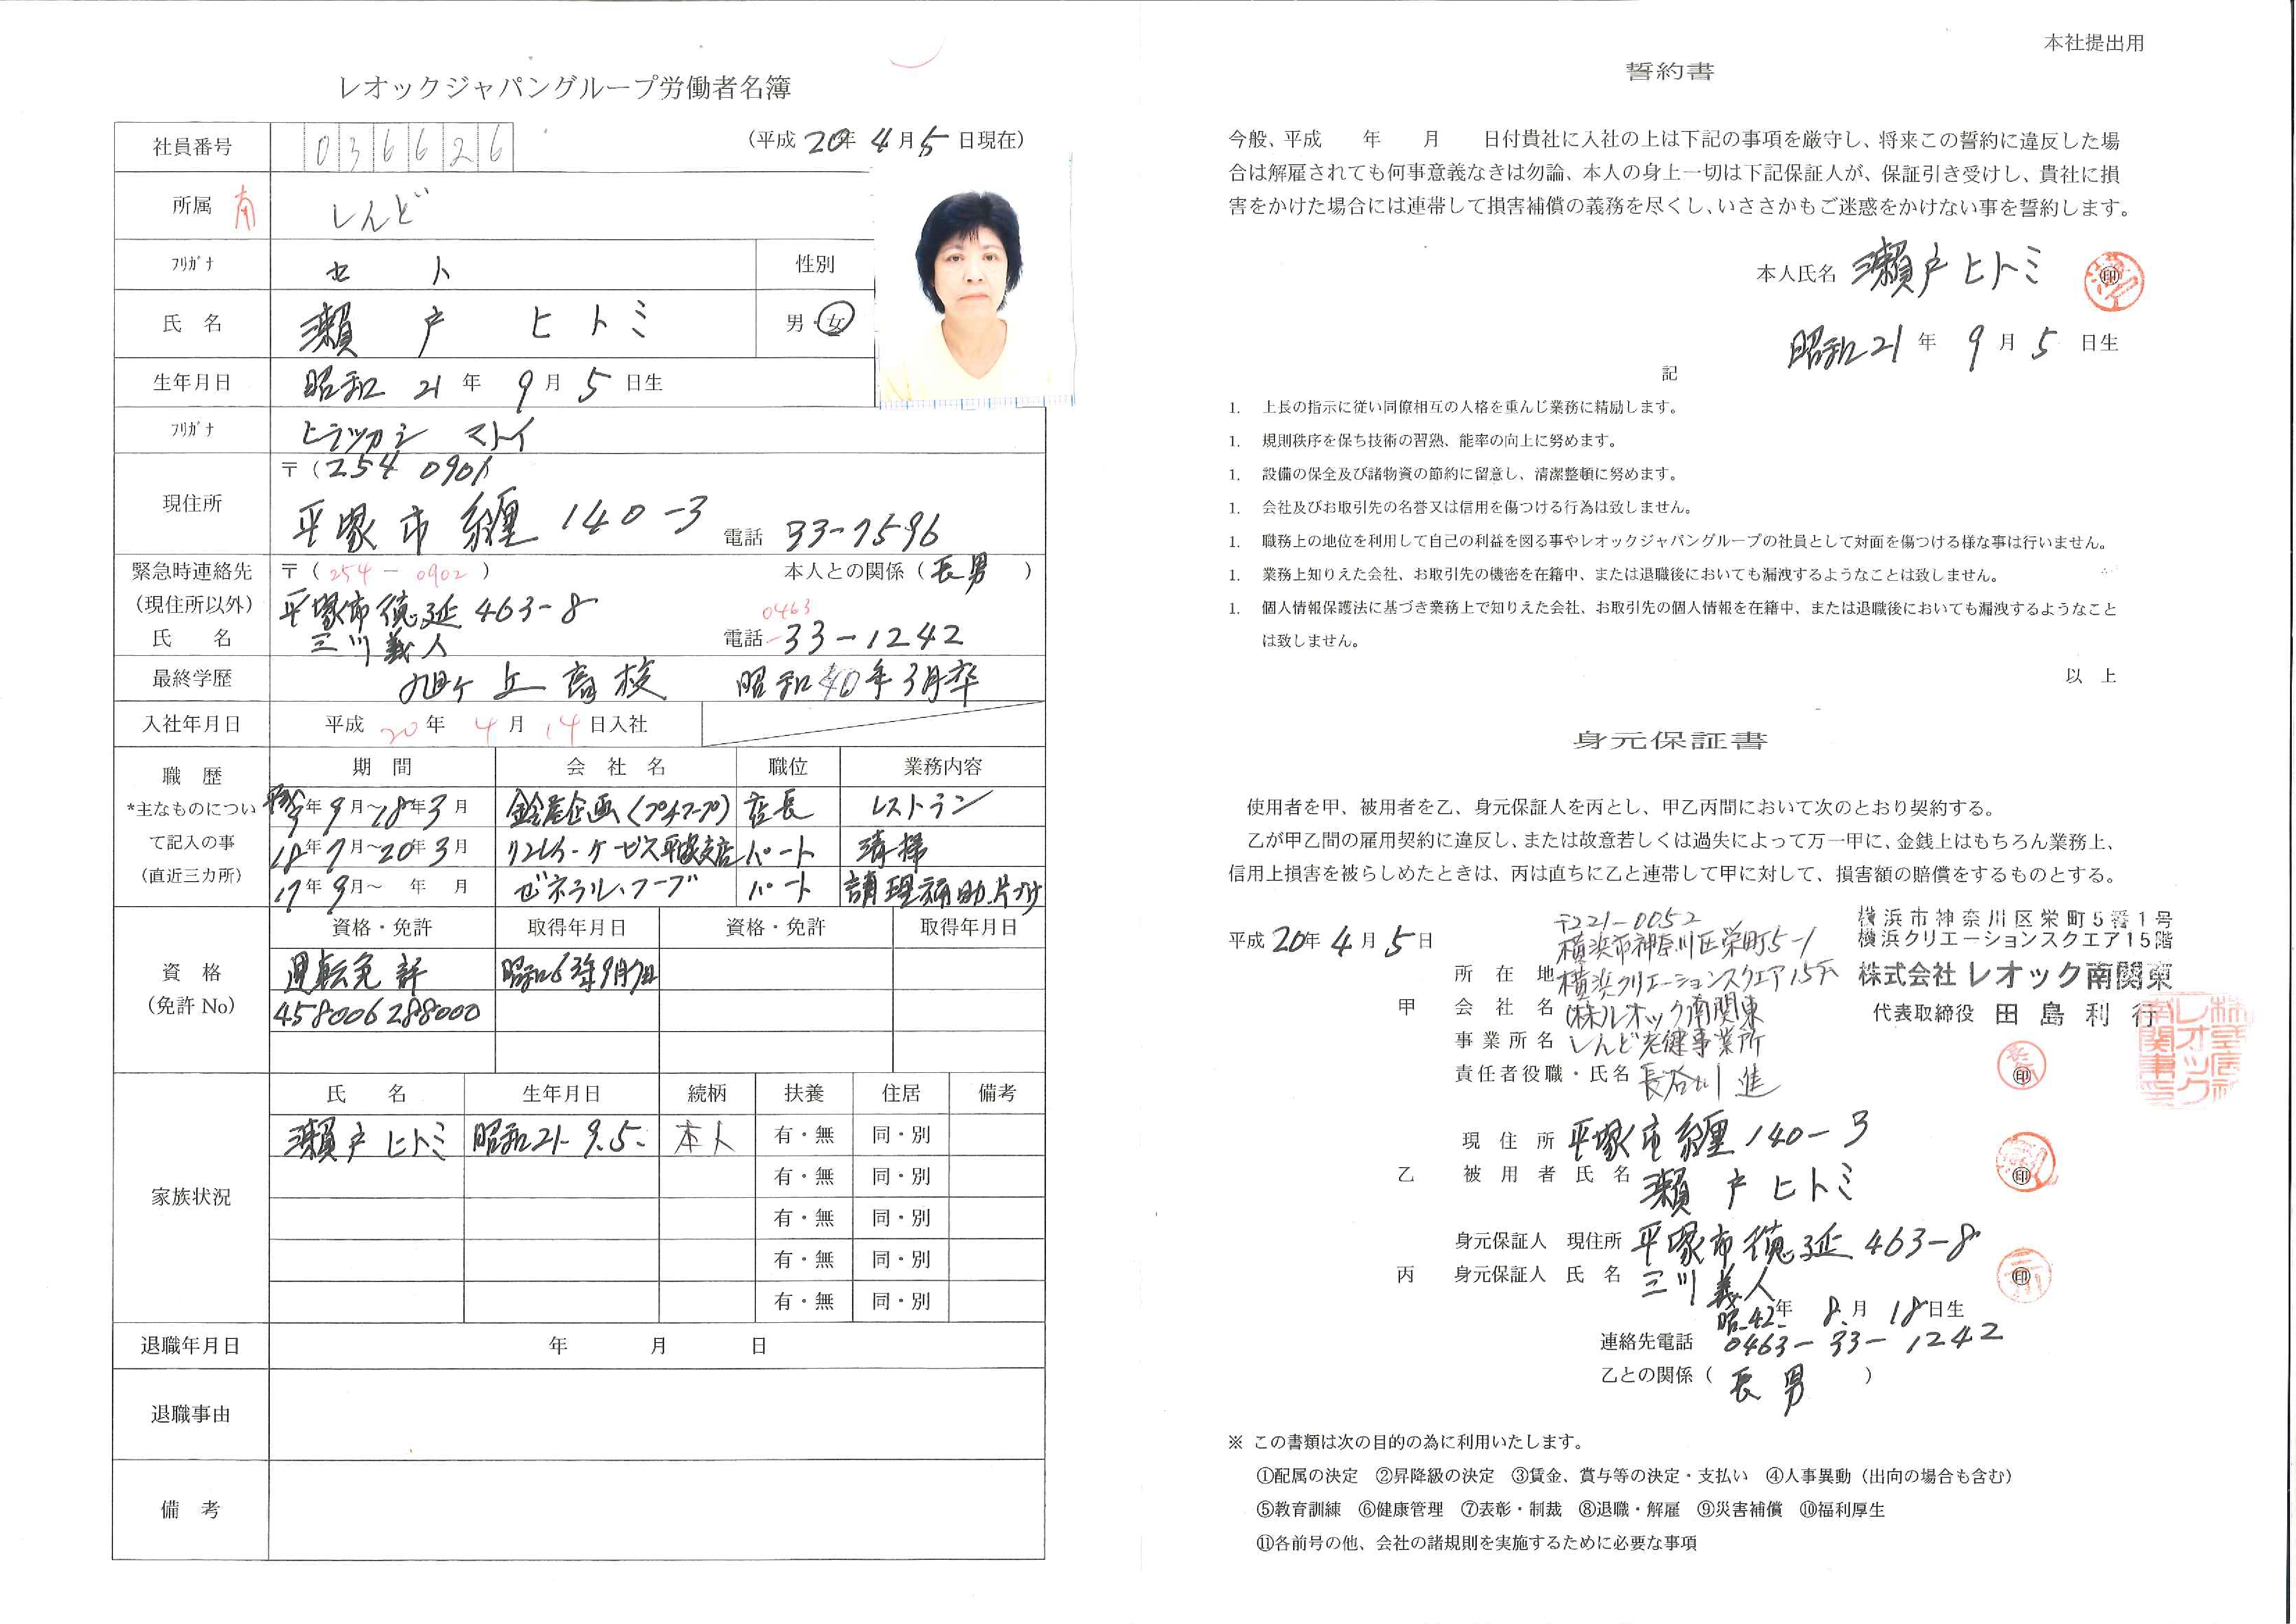 レオックジャパングループ労働者名簿
社員番号 036626
(平成 20年 4月 5日現在)
所属 南 しんど
フリガナ セト
性別
氏名 瀬戸 ヒトミ
男・女
生年月日 昭和 21年 9月 5日生
フリガナ ヒラツカシ マトイ
現住所 〒(254 0901
平塚市纒140-3 電話 33-7596
緊急時連絡先 〒(254-0902) 本人との関係(長男)
(現住所以外) 平塚市徳延463-8 0463
氏名 三川義人 電話-33-1242
最終学歴 旭ヶ丘高校 昭和40年3月卒
入社年月日 平成 20年 4月 14日入社
職歴
*主なものについ
て記入の事
(直近三カ所)
期間 会社名 職位 業務内容
年9月~18年3月 鈴屋企画 店長 レストラン
18年7月~20年3月 平塚支店 パート 清掃
17年9月~ 年 月 ゼネラル・フーブ パート 調理補助、片付
資格
(免許No)
資格・免許 取得年月日 資格・免許 取得年月日
運転免許 昭和63年9月7日
458006288000
家族状況
氏名 生年月日 続柄 扶養 住居 備考
瀬戸ヒトミ 昭和21-9.5. 本人 有・無 同・別
有・無 同・別
有・無 同・別
有・無 同・別
有・無 同・別
退職年月日 年 月 日
退職事由
備考
本社提出用
誓約書
今般、平成 年 月 日付貴社に入社の上は下記の事項を厳守し、将来この誓約に違反した場
合は解雇されても何事意義なきは勿論、本人の身上一切は下記保証人が、保証引き受けし、貴社に損
害をかけた場合には連帯して損害補償の義務を尽くし、いささかもご迷惑をかけない事を誓約します。
本人氏名 瀬戸ヒトミ 印
昭和21年 9月 5日生
記
1. 上長の指示に従い同僚相互の人格を重んじ業務に精励します。
1. 規則秩序を保ち技術の習熟、能率の向上に努めます。
1. 設備の保全及び諸物資の節約に留意し、清潔整頓に努めます。
1. 会社及びお取引先の名誉又は信用を傷つける行為は致しません。
1. 職務上の地位を利用して自己の利益を図る事やレオックジャパングループの社員として対面を傷つける様な事は行いません。
1. 業務上知りえた会社、お取引先の機密を在籍中、または退職後においても漏洩するようなことは致しません。
1. 個人情報保護法に基づき業務上で知りえた会社、お取引先の個人情報を在籍中、または退職後においても漏洩するようなこと
は致しません。
以上
身元保証書
使用者を甲、被用者を乙、身元保証人を丙とし、甲乙丙間において次のとおり契約する。
乙が甲乙間の雇用契約に違反し、または故意若しくは過失によって万一甲に、金銭上はもちろん業務上、
信用上損害を被らしめたときは、丙は直ちに乙と連帯して甲に対して、損害額の賠償をするものとする。
平成20年 4月 5日
〒221-0052
横浜市神奈川区栄町5-1
所在地 横浜クリエーションスクエア15F
甲 会社名 (株)レオック南関東
事業所名 しんど老健事業所
責任者役職・氏名 長谷川進 印
横浜市神奈川区栄町5番1号
横浜クリエーションスクエア15階
株式会社レオック南関東
代表取締役 田島利行
株式会社レオック南関東
現住所 平塚市纒140-3
乙 被用者氏名 瀬戸ヒトミ 印
身元保証人 現住所 平塚市徳延463-8
丙 身元保証人 氏名 三川義人 印
昭.42.年 8.月 18日生
連絡先電話 0463-33-1242
乙との関係(長男)
※ この書類は次の目的の為に利用いたします。
①配属の決定 ②昇降級の決定 ③賃金、賞与等の決定・支払い ④人事異動(出向の場合も含む)
⑤教育訓練 ⑥健康管理 ⑦表彰・制裁 ⑧退職・解雇 ⑨災害補償 ⑩福利厚生
⑪各前号の他、会社の諸規則を実施するために必要な事項